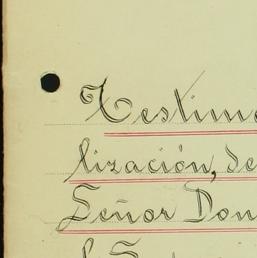 Testimo
lización, de
Señor Don